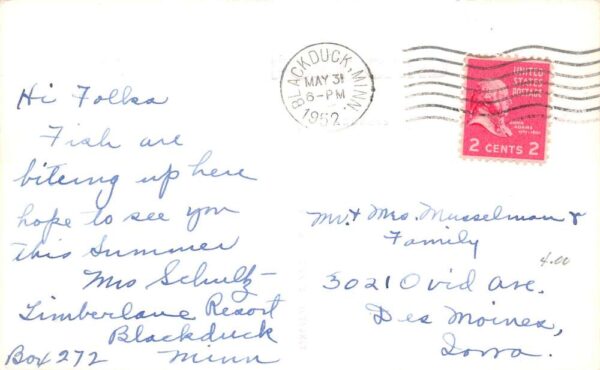 Hi Folks
Fish are
biteing up here
hope to see you
this Summer
Mrs Schultz-
Timberlane Resort
Blackduck
Box 272 Minn
BLACKDUCK, MINN.
MAY 31
6-PM
1952
UNITED
STATES
POSTAGE
JOHN
ADAMS
2 CENTS 2
Mr. & Mrs. Musselman &
Family
4.00
3021 Ovid Ave.
Des Moines,
Iowa.